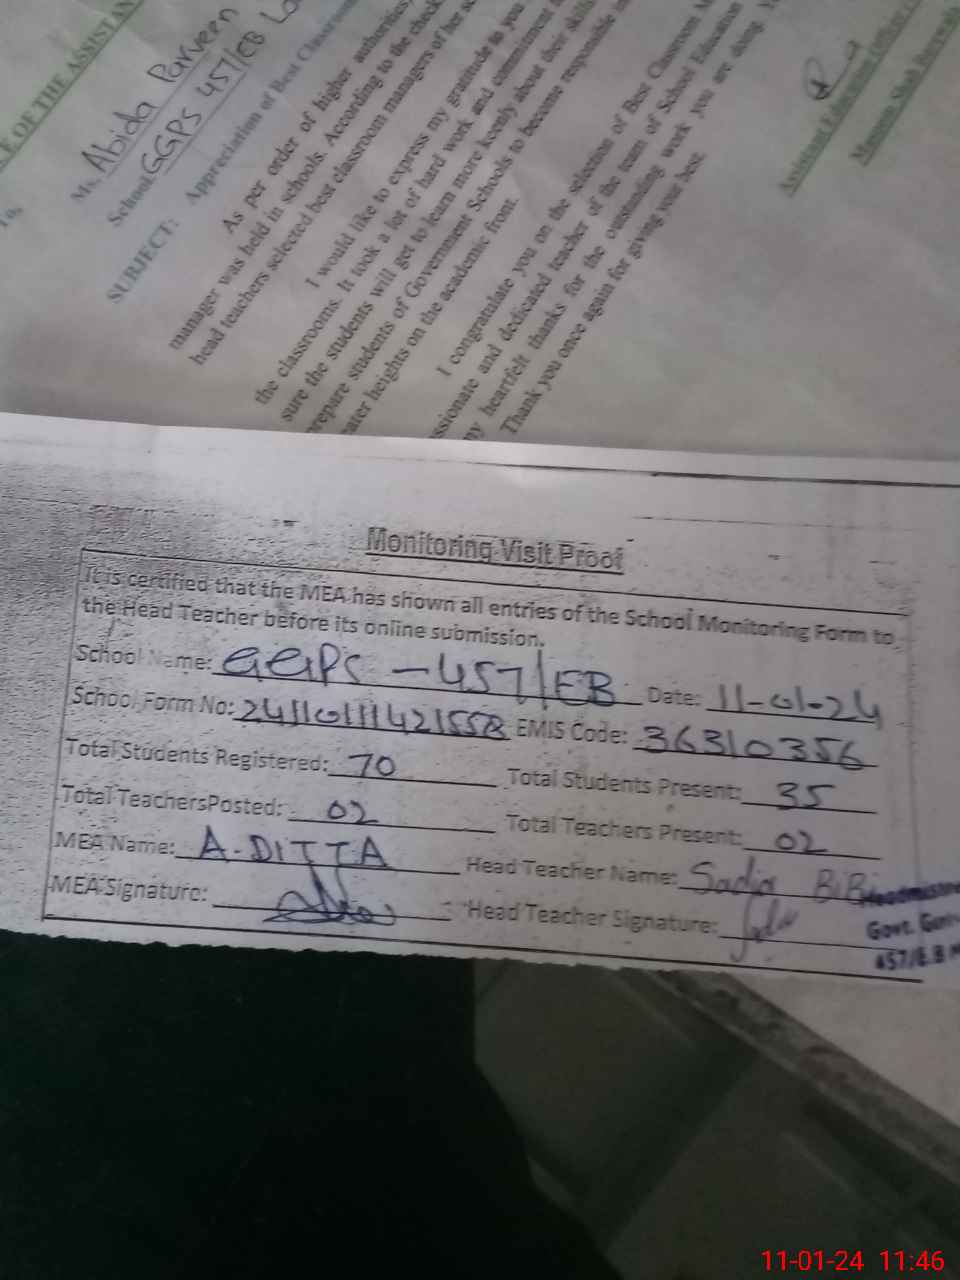 E OF THE ASSISTAN
To,
Ms. Abida Parveen
School GGPS 457/EB
SUBJECT: Appreciation of Best Classroom
As per order of higher authorities,
manager was held in schools. According to the check
head teachers selected best classroom managers of her
I would like to express my gratitude to you
the classrooms. It took a lot of hard work and commitment
sure the students will get to learn more keenly about their skills
prepare students of Government Schools to become responsible
ater heights on the academic front.
I congratulate you on the selection of Best Classroom
ssionate and dedicated teacher of the team of School Education
my heartfelt thanks for the outstanding work you are doing.
Thank you once again for giving your best.
Assistant Education Officer
Monitoring Visit Proof
It is certified that the MEA has shown all entries of the School Monitoring Form to
the Head Teacher before its online submission.
School Name: GGPS - 457/EB Date: 11-01-24
School Form No: 24110111421558 EMIS Code: 36310356
Total Students Registered: 70 Total Students Present: 35
Total TeachersPosted: 02 Total Teachers Present: 02
MEA Name: A-DITTA Head Teacher Name: Sadia BiBi
MEA Signature: Head Teacher Signature:
Headmistre
Govt. Girl
457/E.B
11-01-24 11:46